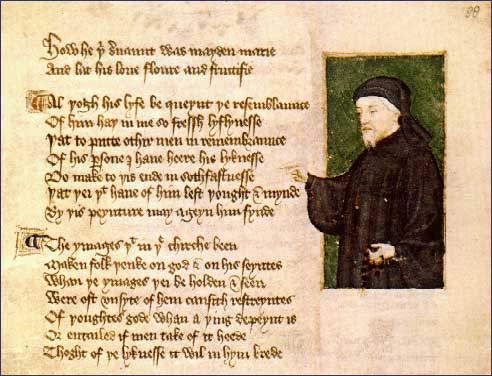 88
How he þͥ seruaunt was mayden marie
And lat his loue floure and fructifie
Al þogh his lyfe be queynt þe resemblaunce
Of him haþ in me so fressh lyflynesse
Þat to putte othir men in remembraunce
Of his ꝑsone I haue heere his lyknesse
Do make to þis ende in sothfastnesse
Þat þei þͭ haue of him left þought & mynde
By þis peynture may ageyn him fynde
The ymages þͭ in þͤ chirche been
Maken folk þenke on god & on his seyntes
Whan þe ymages þei beholden & seen
Were oft vnsyte of hem causith restreyntes
Of þoughtes gode whan a þing depeynt is
Or entailed if men take of it heede
Thoght of þe lyknesse it wil in hym brede